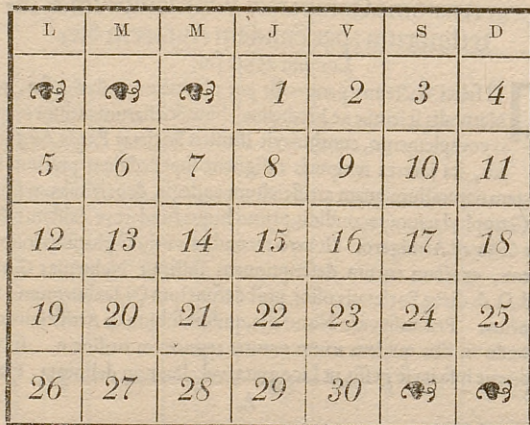 L M M J V S D
1 2 3 4
5 6 7 8 9 10 11
12 13 14 15 16 17 18
19 20 21 22 23 24 25
26 27 28 29 30